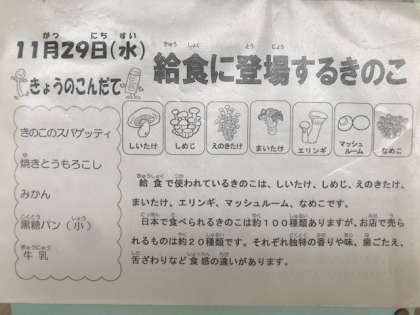 11月29日(水)
きょうのこんだて
きのこのスパゲッティ
焼きとうもろこし
みかん
黒糖パン(小)
牛乳
給食に登場するきのこ
しいたけ
しめじ
えのきたけ
まいたけ
エリンギ
マッシュルーム
なめこ
給食で使われているきのこは、しいたけ、しめじ、えのきたけ、
まいたけ、エリンギ、マッシュルーム、なめこです。
日本で食べられるきのこは約100種類ありますが、お店で売ら
れるものは約20種類です。それぞれ独特の香りや味、歯ごたえ、
舌ざわりなど食感の違いがあります。